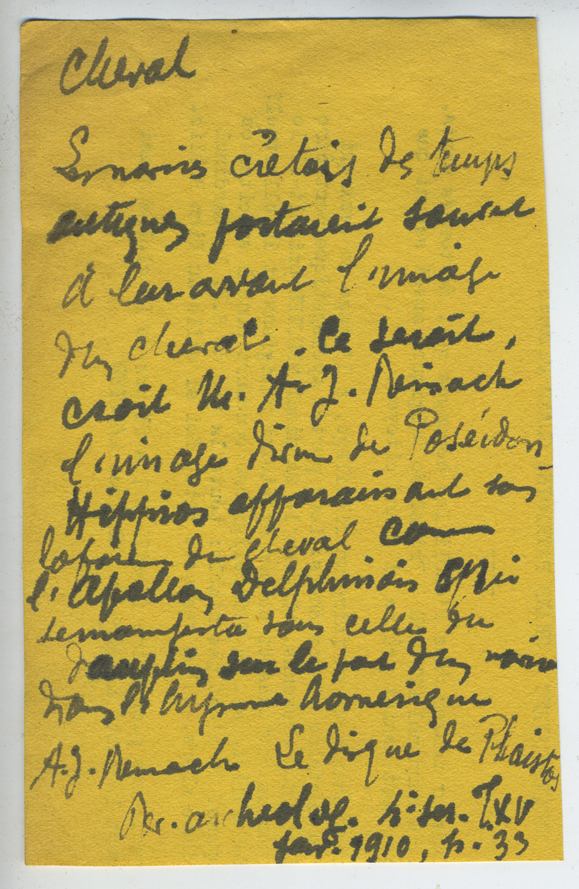 Cheval
Les navires crétois des temps
antiques portaient souvent
à leur avant l'image
d'un cheval. Ce serait,
croit M. A.-J. Reinach
l'image divine de Poséidon
Hippios apparaissant sous
la forme du cheval comme
l'Apollon Delphinios qui
se manifesta sous celle du
dauphin sur le pont d'un navire
dans l'hymne homérique
A.J. Reinach Le disque de Phaistos
Rev. archéolog. 4e ser. T. XV
janv. 1910, p. 33